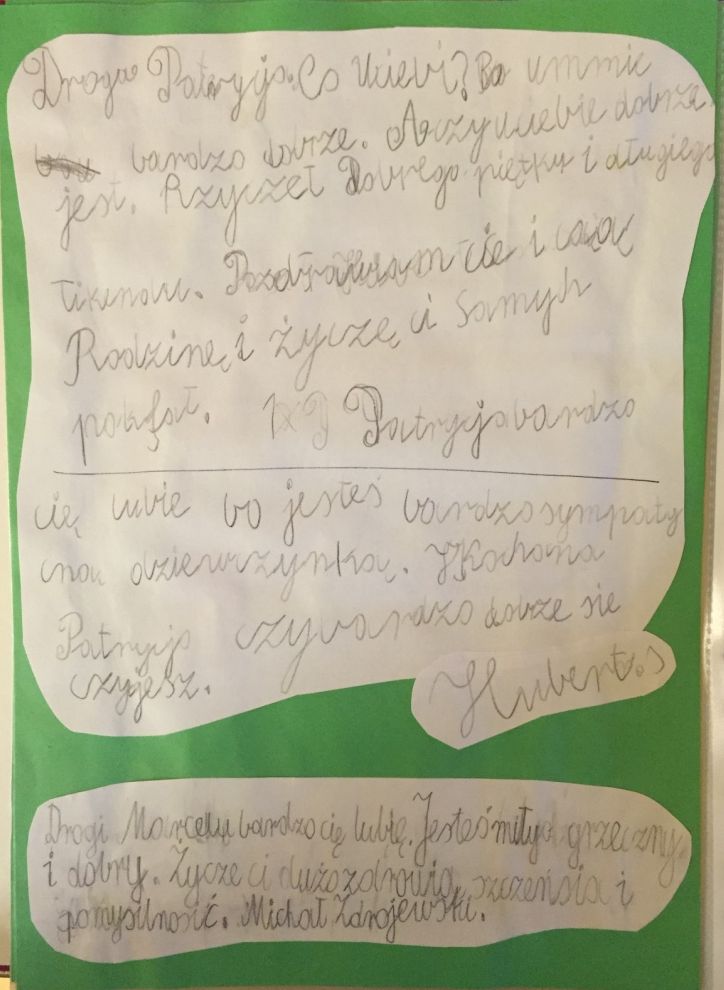 Droga Patrycjo. Co Uciebi? Bo ummie
bardzo dobrze. A czy uuebie dobrze
jest. Rzyczeł Dobrego piętku i długiego
łikendu. Pozdrawiam cie i całą
Rodzinę i życzę ci samyh
pokfał. Patrycjo bardzo
cię lubie bo jesteś bardzo sympaty
cna dziewrzynką. Kochana
Patrycjo czy bardzo dobrze sie
czyjesz.
Hubert.s
Drogi Marcelu bardzo cię lubię. Jesteś miły grzeczny
i dobry. Życze ci dużo zdrowia, szczeńsia i
pomysilności. Michał Zdrojewski.